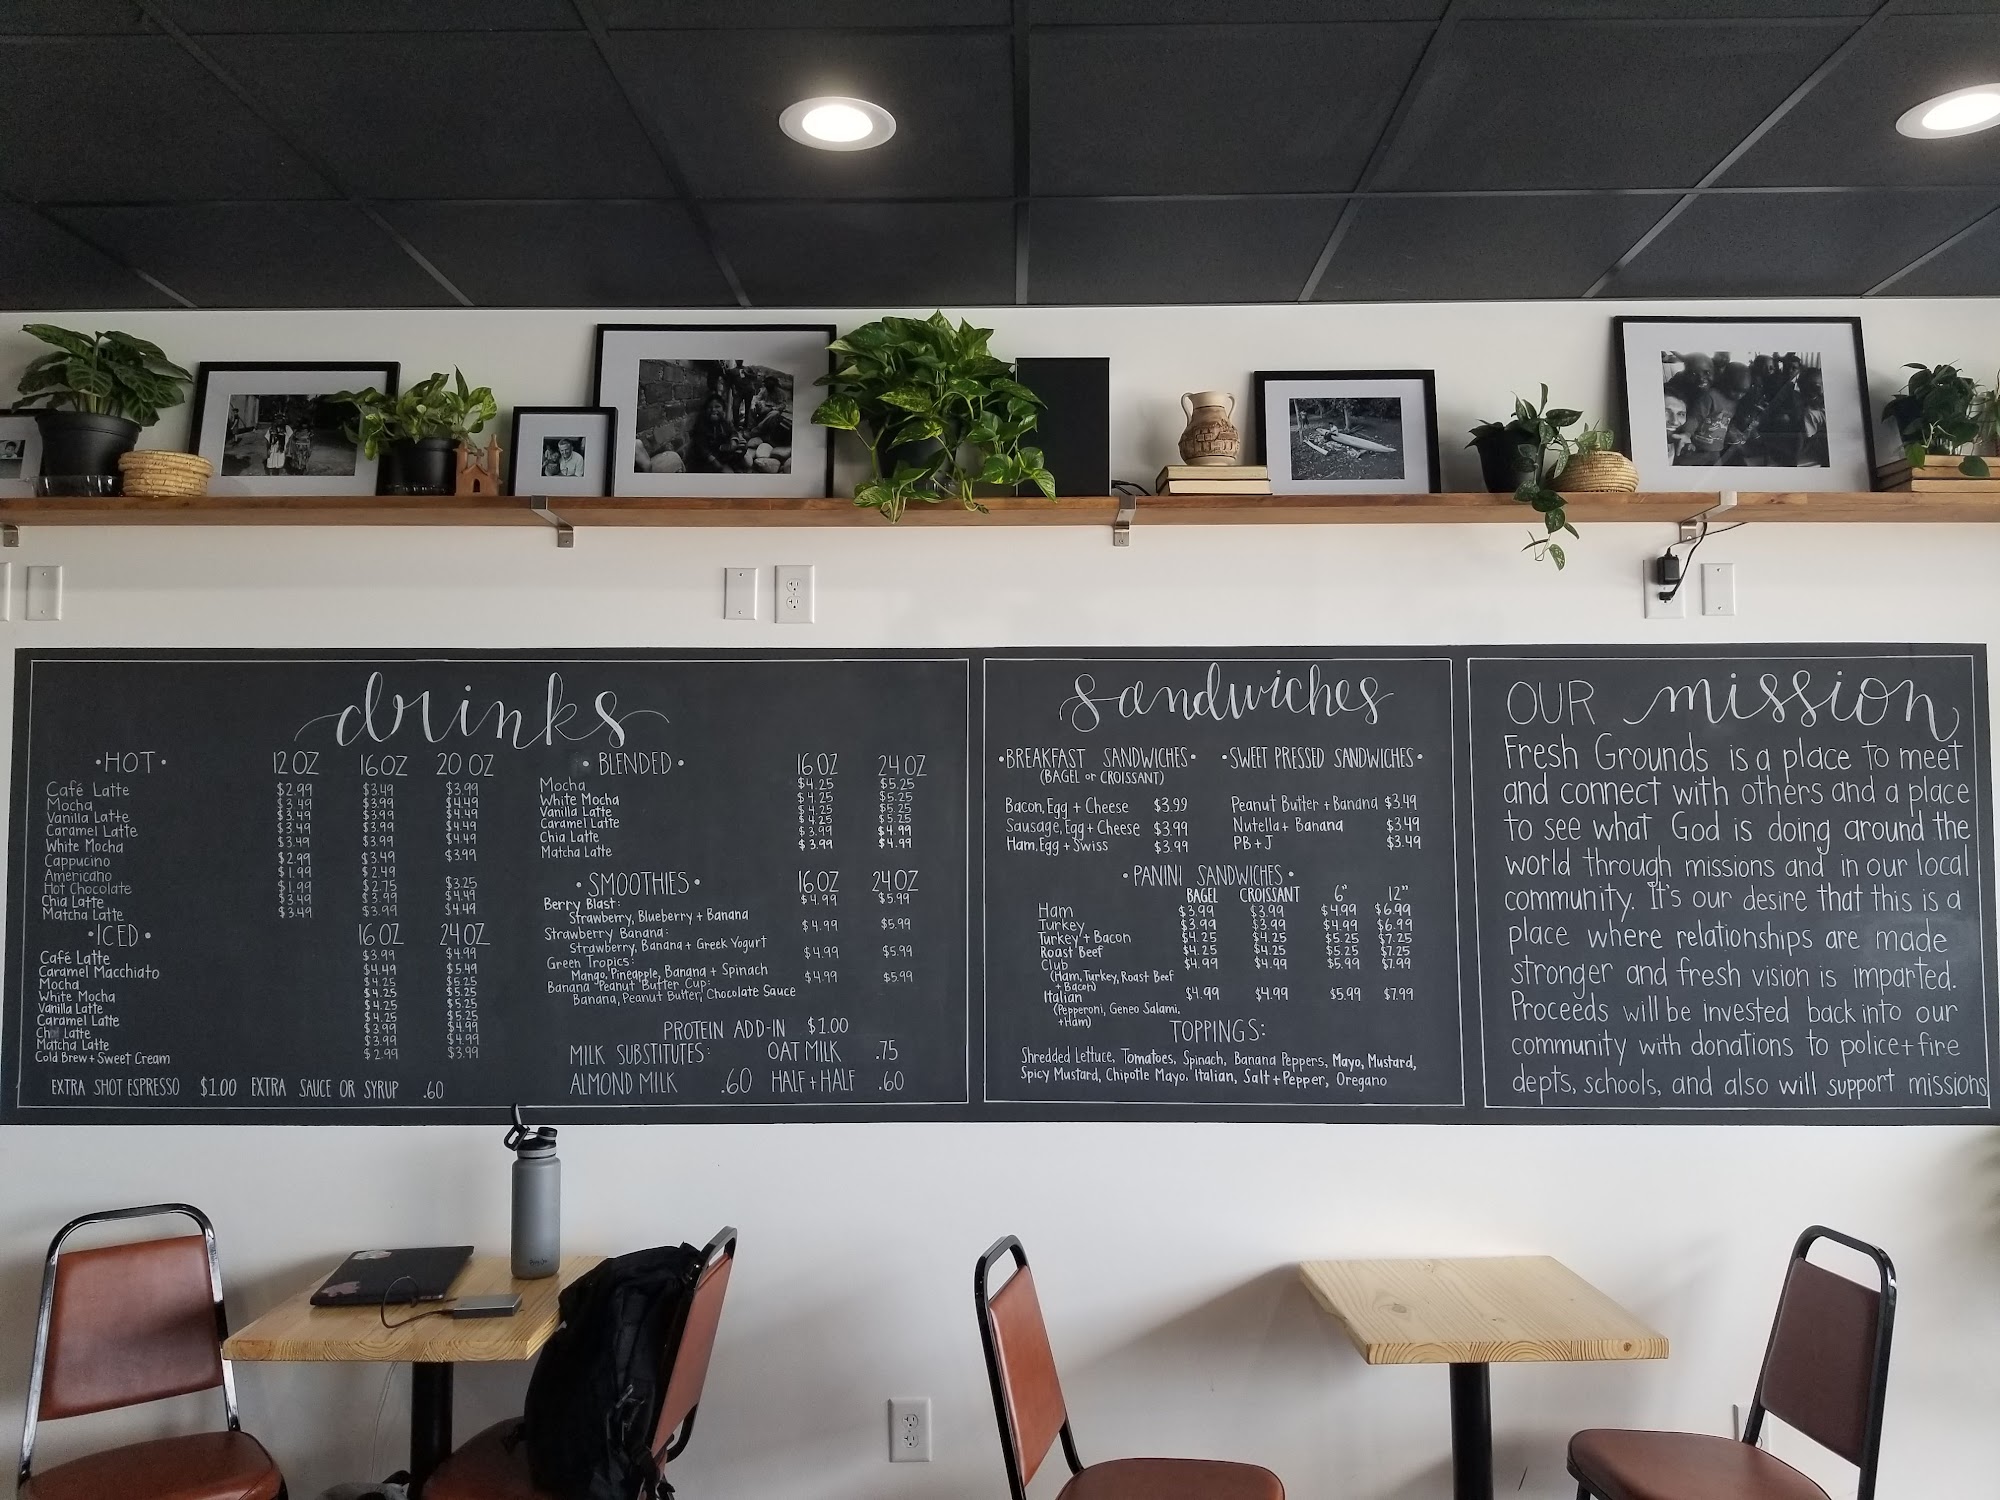 drinks
•HOT• 12 OZ 16 OZ 20 OZ
Café Latte $2.99 $3.49 $3.99
Mocha $3.49 $3.99 $4.49
Vanilla Latte $3.49 $3.99 $4.49
Caramel Latte $3.49 $3.99 $4.49
White Mocha $3.49 $3.99 $4.49
Cappucino $2.99 $3.49 $3.99
Americano $1.99 $2.49
Hot Chocolate $1.99 $2.75 $3.25
Chia Latte $3.49 $3.99 $4.49
Matcha Latte $3.49 $3.99 $4.49
•ICED• 16 OZ 24 OZ
Café Latte $3.99 $4.99
Caramel Macchiato $4.49 $5.49
Mocha $4.25 $5.25
White Mocha $4.25 $5.25
Vanilla Latte $4.25 $5.25
Caramel Latte $4.25 $5.25
Latte $3.99 $4.99
Matcha Latte $3.99 $4.99
Cold Brew + Sweet Cream $2.99 $3.99
EXTRA SHOT ESPRESSO $1.00 EXTRA SAUCE OR SYRUP .60
• BLENDED • 16 OZ 24 OZ
Mocha $4.25 $5.25
White Mocha $4.25 $5.25
Vanilla Latte $4.25 $5.25
Caramel Latte $4.25 $5.25
Chia Latte $3.99 $4.99
Matcha Latte $3.99 $4.99
• SMOOTHIES • 16 OZ 24 OZ
Berry Blast: $4.99 $5.99
Strawberry, Blueberry + Banana
Strawberry Banana: $4.99 $5.99
Strawberry, Banana + Greek Yogurt
Green Tropics: $4.99 $5.99
Mango, Pineapple, Banana + Spinach
Banana Peanut Butter Cup: $4.99 $5.99
Banana, Peanut Butter, Chocolate Sauce
PROTEIN ADD-IN $1.00
MILK SUBSTITUTES: OAT MILK .75
ALMOND MILK .60 HALF + HALF .60
sandwiches
•BREAKFAST SANDWICHES•
(BAGEL or CROISSANT)
Bacon, Egg + Cheese $3.99
Sausage, Egg + Cheese $3.99
Ham, Egg + Swiss $3.99
•SWEET PRESSED SANDWICHES•
Peanut Butter + Banana $3.49
Nutella + Banana $3.49
PB + J $3.49
• PANINI SANDWICHES •
BAGEL CROISSANT 6" 12"
Ham $3.99 $3.99 $4.99 $6.99
Turkey $3.99 $3.99 $4.99 $6.99
Turkey + Bacon $4.25 $4.25 $5.25 $7.25
Roast Beef $4.25 $4.25 $5.25 $7.25
Club $4.99 $4.99 $5.99 $7.99
(Ham, Turkey, Roast Beef
+ Bacon)
Italian $4.99 $4.99 $5.99 $7.99
(Pepperoni, Geneo Salami,
+Ham)
TOPPINGS:
Shredded Lettuce, Tomatoes, Spinach, Banana Peppers, Mayo, Mustard,
Spicy Mustard, Chipotle Mayo, Italian, Salt + Pepper, Oregano
OUR mission
Fresh Grounds is a place to meet
and connect with others and a place
to see what God is doing around the
world through missions and in our local
community. It's our desire that this is a
place where relationships are made
stronger and fresh vision is imparted.
Proceeds will be invested back into our
community with donations to police + fire
depts, schools, and also will support missions